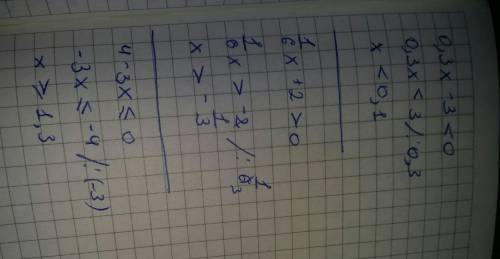 0,3x - 3 < 0
0,3x < 3 /:0,3
x < 0,1
1/6 x + 2 > 0
1/6 x > -2 /: 1/6
x > - 1/3
4 - 3x ≤ 0
-3x ≤ -4 /:(-3)
x ⩾ 1,3